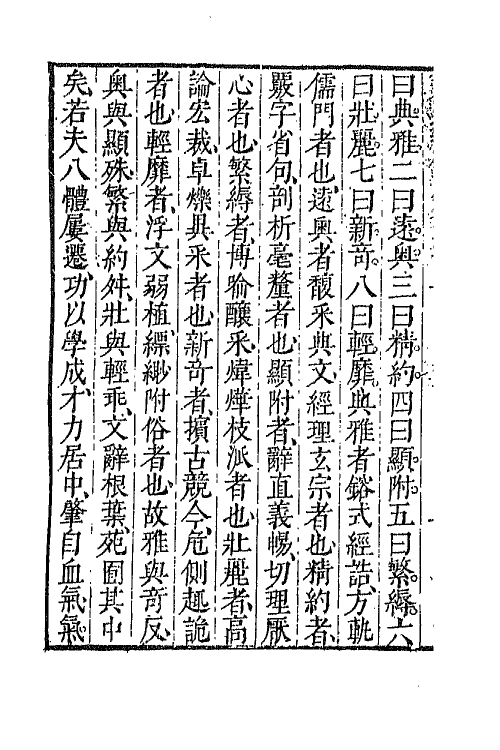 曰典雅二曰遠奧三曰精約四曰顯附五曰繁縟六
曰壯麗七曰新竒八曰輕靡典雅者鎔式經誥、方軌
儒門者也、遠奧者馥采典文、經理玄宗者也、精約者、
覈字省句、剖析毫釐者也、顯附者、辭直義暢、切理厭
心者也、繁縟者、博喻釀采、煒燁枝派者也、壯麗者、高
論宏裁、卓爍異采者也、新竒者、擯古競今、危側趣詭
者也、輕靡者、浮文弱植、縹緲附俗者也、故雅與竒反、
奧與顯殊、繁與約舛、壯與輕乖、文辭根葉、苑囿其中
矣、若夫八體屢遷、功以學成、才力居中、肇自血氣。氣